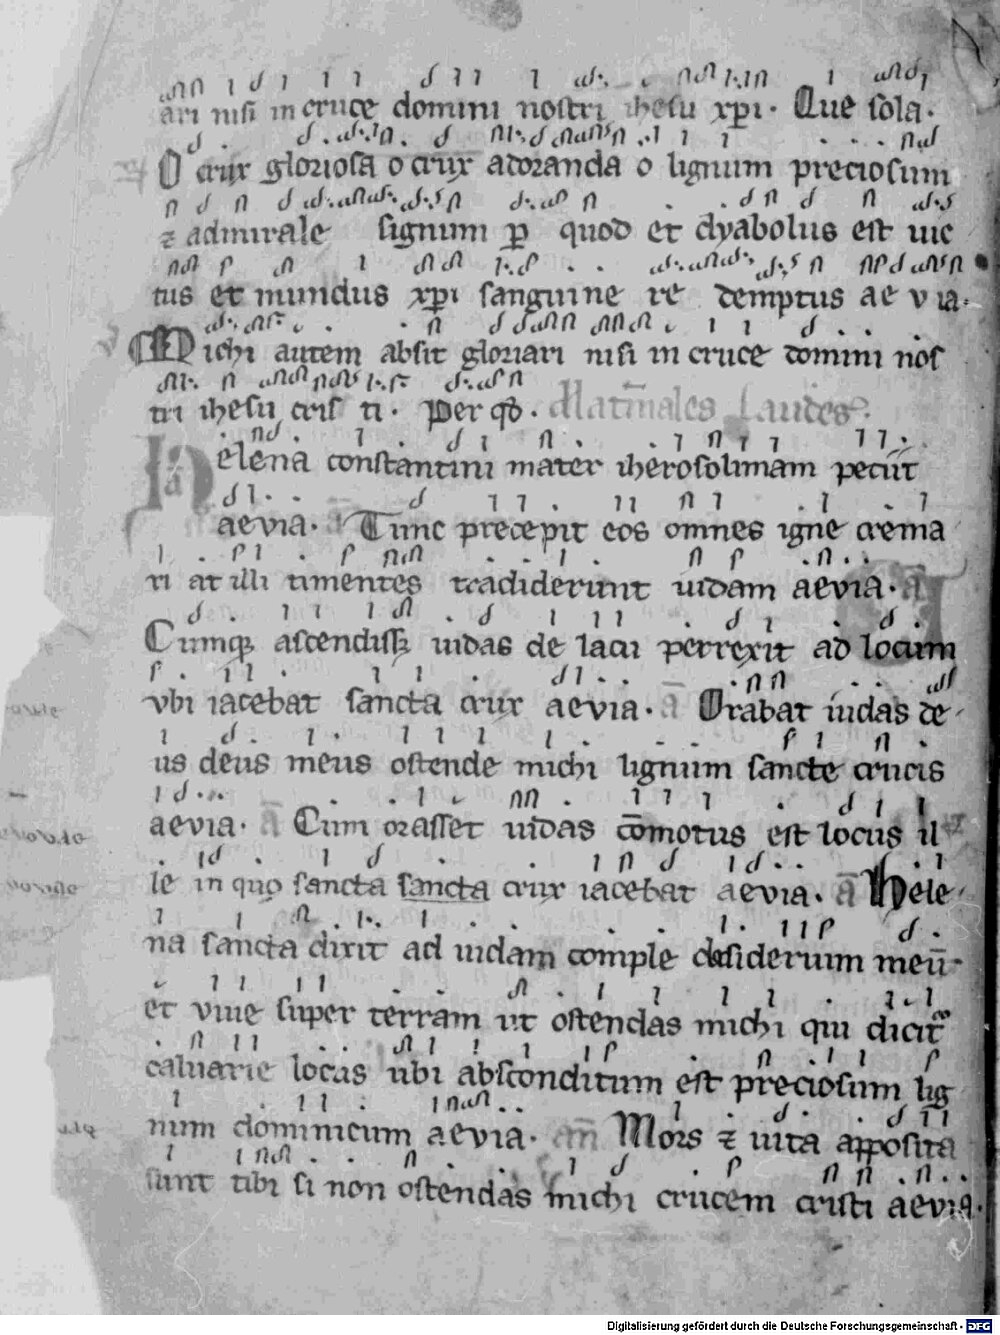 ari nisi in cruce domini nostri ihesu xpi. Que sola.
O crux gloriosa o crux adoranda o lignum preciosum
⁊ admirale signum p quod et dyabolus est uic
tus et mundus xpi sanguine re demptus aevia.
Michi autem absit gloriari nisi in cruce domini nos
tri ihesu cris ti. Per qd. Matinales Laudes.
Helena constantini mater iherosolimam peciit
aevia. a̅ Tunc precepit eos omnes igne crema
ri at illi timentes tradiderunt iudam aevia. a̅
Cumqꝫ ascendissꝫ iudas de lacu perrexit ad locum
vbi iacebat sancta crux aevia. a̅ Orabat iudas de
us deus meus ostende michi lignum sancte crucis
aevia. a̅ Cum orasset iudas co̅motus est locus il
le in quo sancta sancta crux iacebat aevia. a̅ Hele
na sancta dixit ad iudam comple desiderium meu̅
et viue super terram ut ostendas michi qui dicitr
caluarie locus ubi absconditum est preciosum lig
num dominicum aevia. an̅ Mors ⁊ uita apposita
sunt tibi si non ostendas michi crucem cristi aevia.
Digitalisierung gefördert durch die Deutsche Forschungsgemeinschaft - DFG